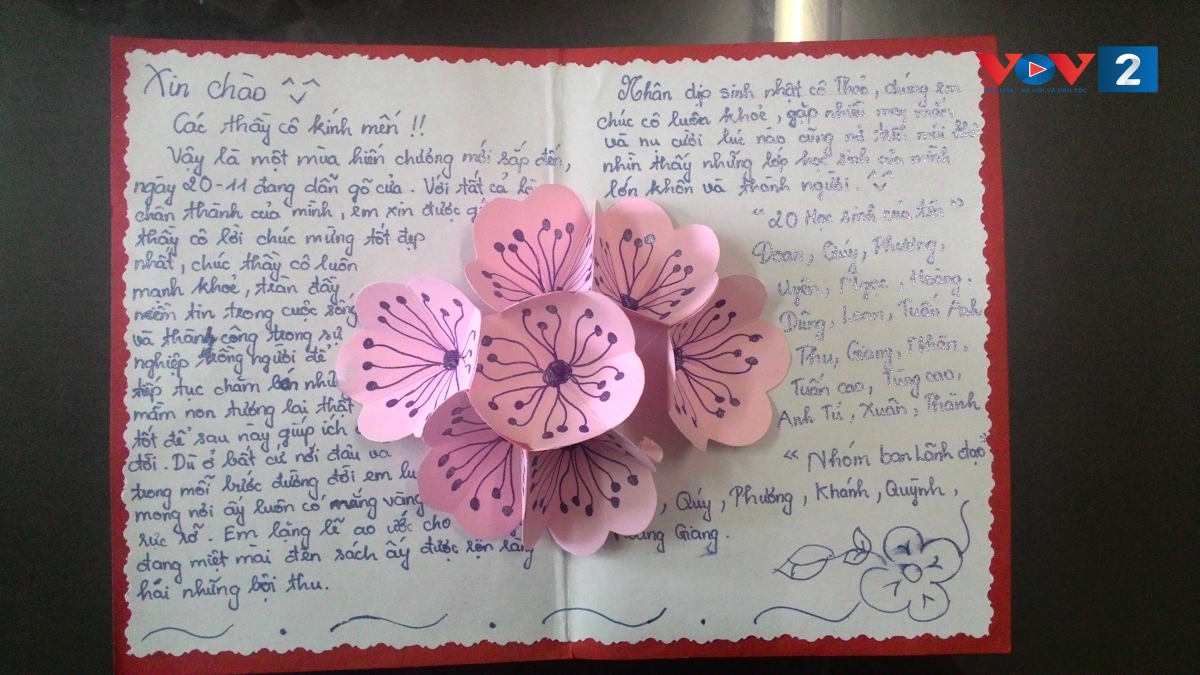 Xin chào
Các thầy cô kính mến !!
Vậy là một mùa hiến chương mới sắp đến,
ngày 20-11 đang dần gõ cửa. Với tất cả
chân thành của mình, em xin được
thầy cô lời chúc mừng tốt đẹp
nhất, chúc thầy cô luôn
mạnh khoẻ, tràn đầy
niềm tin trong cuộc sống
và thành công trong sự
nghiệp trồng người để
tiếp tục chăm bón
mầm non tương lai thật
tốt để sau này giúp ích
đời. Dù ở bất cứ nơi đâu và
trong mỗi bước đường đời em
mong nơi ấy luôn có nắng vàng
rực rỡ. Em lặng lẽ ao ước cho
đang miệt mai đèn sách ấy được
hái những bội thu.
Nhân dịp sinh nhật cô Thảo, chúng em
chúc cô luôn khoẻ, gặp nhiều may mắn
và nụ cười lúc nào cũng nở trên môi
nhìn thấy những lớp học sinh của mình
lớn khôn và thành người.
"20 Học sinh của
Đoan, Quý, Phương,
Uyên, Ngọc, Hoàng.
Dũng, Loan, Tuấn Anh
Thu, Giang, Nhân,
Tuấn cao, Tùng cao,
Anh Tú, Xuân, Thành
"Nhóm ban Lãnh đạo"
, Quý, Phương, Khánh, Quỳnh,
Giang.
VOV 2